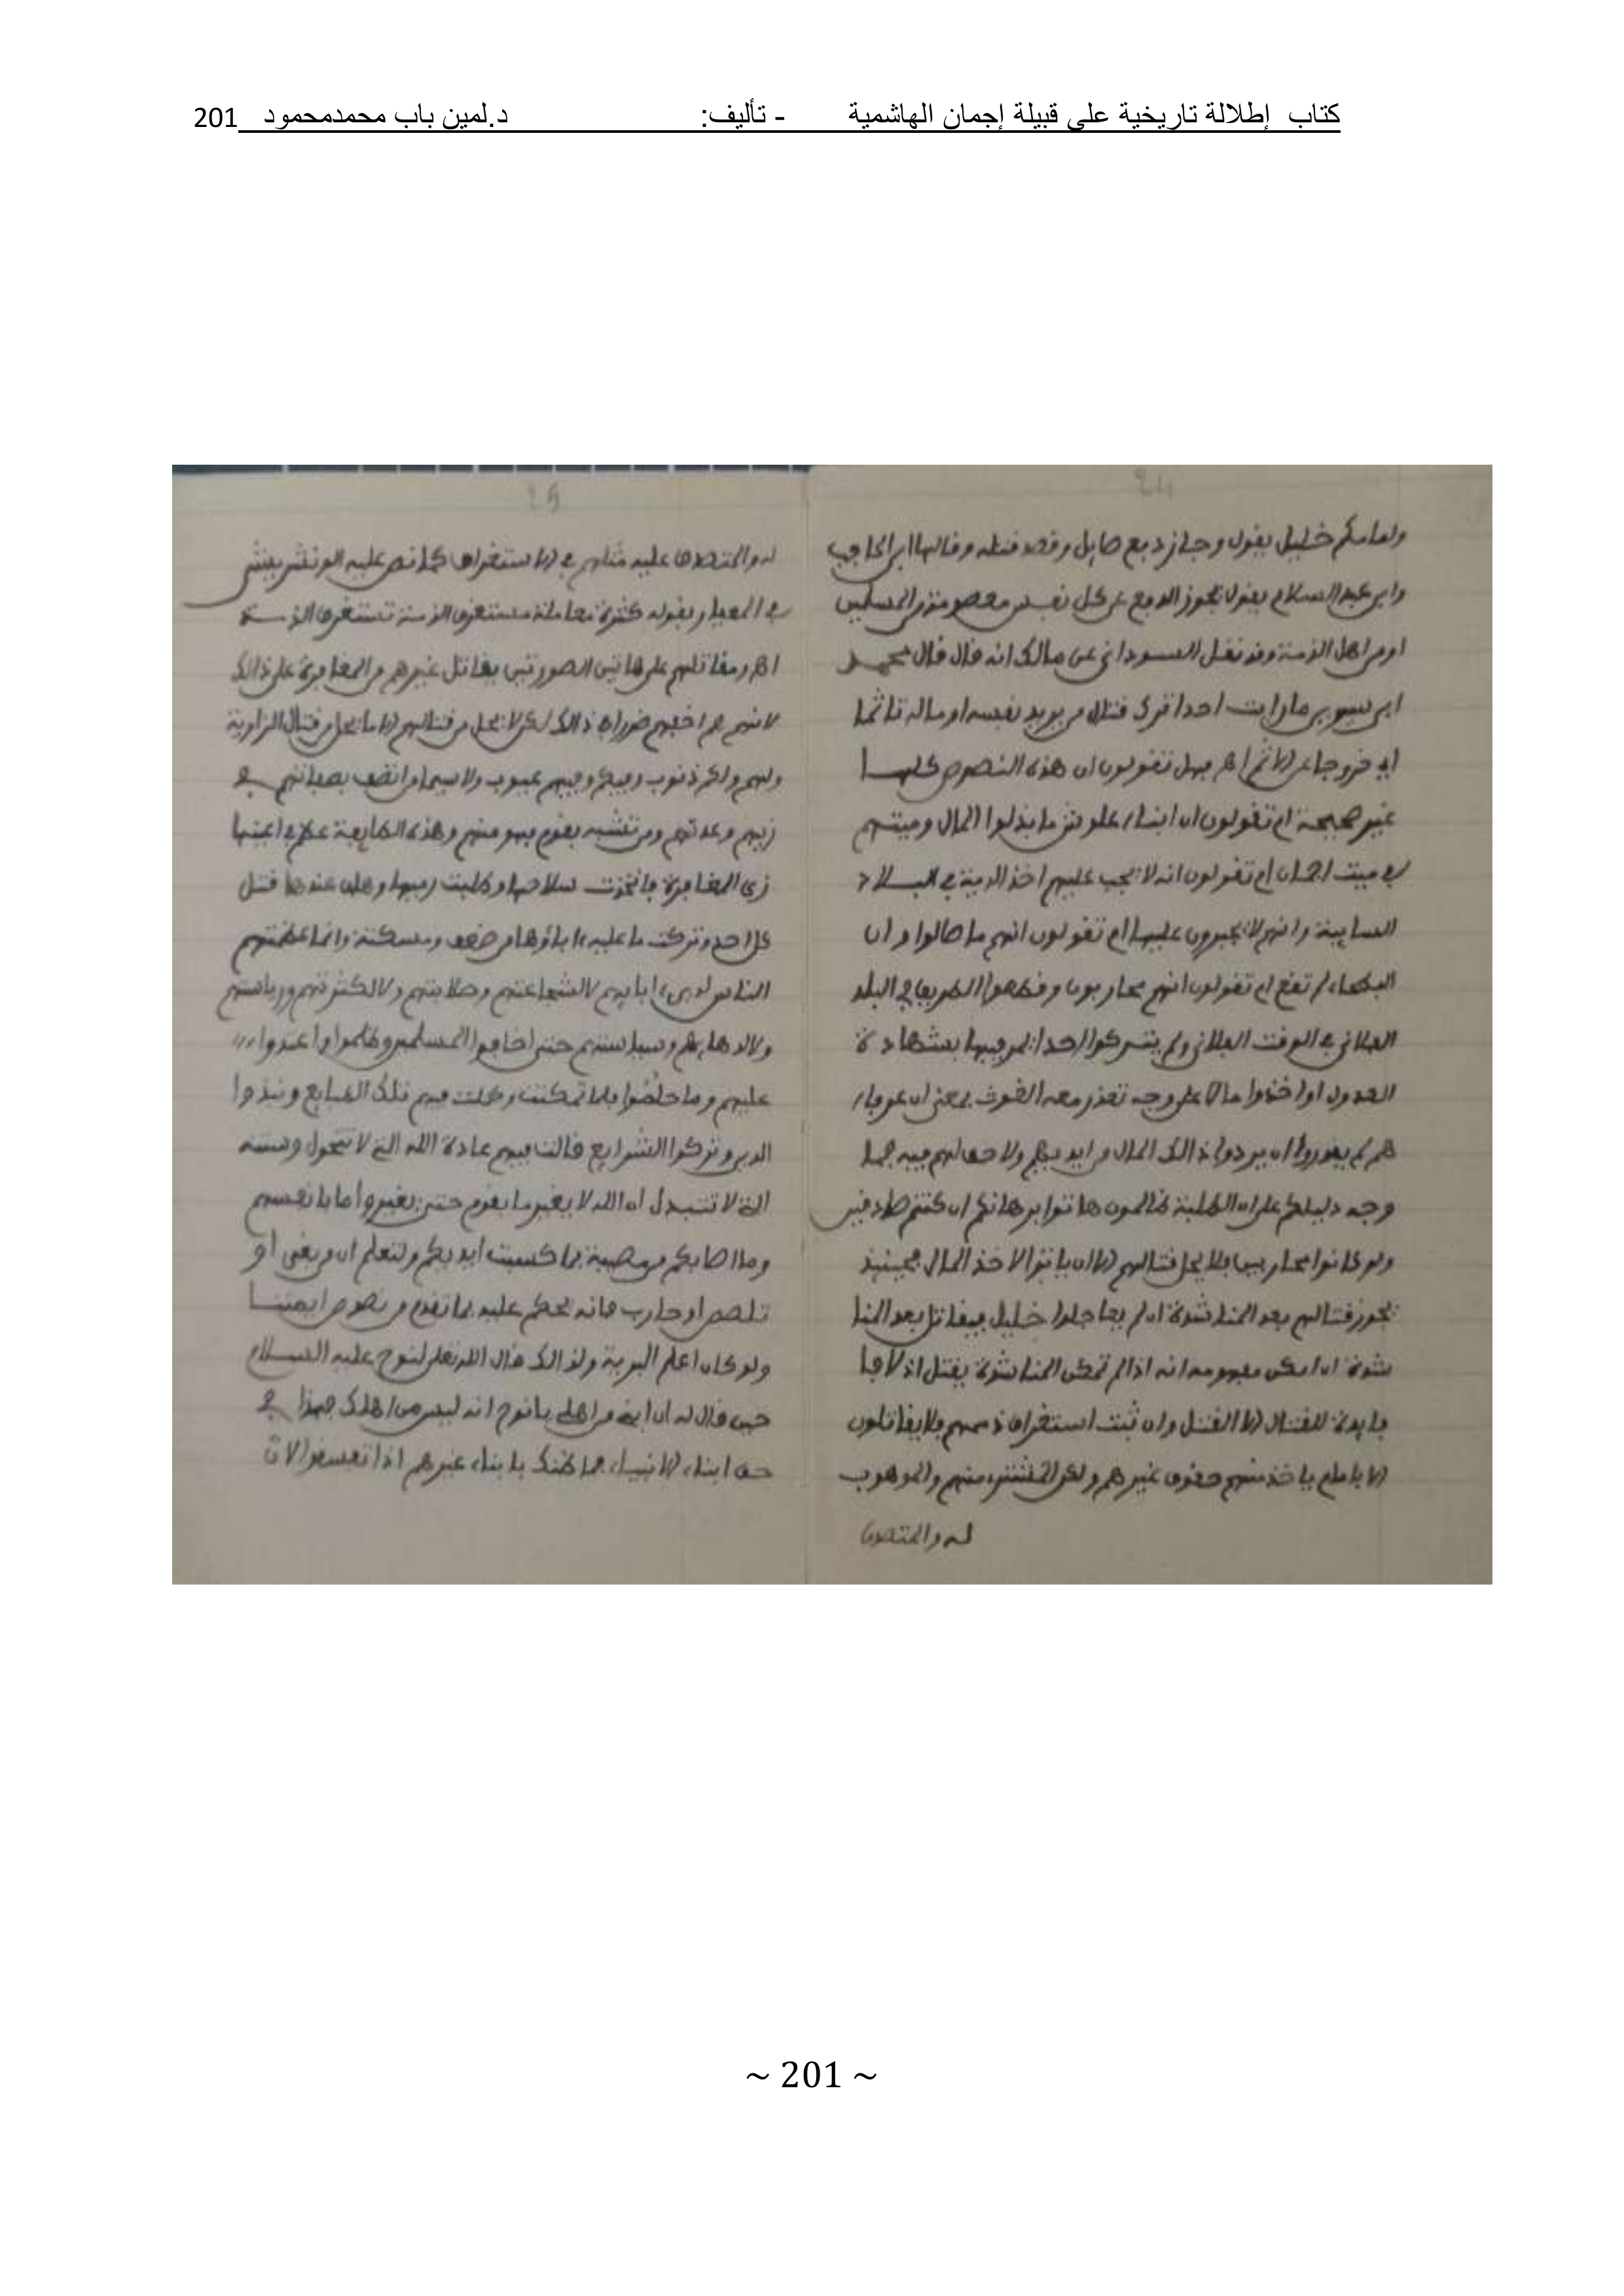 كتاب إطلالة تاريخية على قبيلة إجمان الهاشمية - تأليف: د.لمين باب محمدمحمود 201
24
وامامكم خليل يقول وجاز دفع صايل وقصد قتله وقالها ابن الحاجب
وابن عبد السلام يقول يجوز الدفع عن كل نفس معصومة من المسلمين
او من اهل الذمة وقد نقل السوداني عن مالك انه قال قال محمد
ابن سيرين ما رايت احدا ترك قتال من يريد نفسه او ماله تاثما
اي خروجا عن الاثم اهـ فهل تقولون ان هذه النصوص كلها
غير صحيحة ام تقولون ان ابناء علوش ما بذلوا المال وميتهم
في ميت اجمان ام تقولون انه لا يجب عليهم اخذ الدية في البلاد
السايبة وانهم لا يجبرون عليها ام تقولون انهم ما صالوا وان
البطحاء لم تقع ام تقولون انهم محاربون وقطعوا الطريق في البلد
الفلاني في الوقت الفلاني ولم يتركوا احدا يمر فيها بشهادة
العدول او اخذوا مالا على وجه تعذر معه الغوث بمعنى ان
هم لم يقدروا ان يردوا ذالك المال من ايديهم ولا حق لهم فيه فما
وجه دليلكم على ان الطلبة ظالمون هاتوا برهانكم ان كنتم صادقين
ولو كانوا محاربين فلا يحل قتالهم الا ان ياتوا لاخذ المال فحينيذ
يجوز قتالهم بعد المناشدة ان لم يعاجلوا خليل فيقاتل بعد المنا
شدة ان امكن مفهومه انه اذا لم تمكن المناشدة يقتل اذ لا فا
فايدة للقتال الا القتل وان ثبت استغراق ذممهم فلا يقاتلون
الا بامام ياخذ منهم حقوق غيرهم ولكن المشترى منهم والموهوب
له والمتصدق
25
له والمتصدق عليه مثلهم في الاستغراق كما نص عليه الونشريشي
في المعيار بقوله كثرة معاملة مستغرق الذمة تستغرق الذمة
اهـ ومقاتلهم على هاتين الصورتين يقاتل غيرهم من المغافرة على ذالك
لانهم هم اخفهم ضررا في ذالك لكن لا يحل من قتالهم الا ما يحل من قتال الزاوية
ولهم ولكم ذنوب وفيكم وفيهم عيوب ولا سيما من اتصف بصفاتهم في
زيهم وعدتهم ومن تشبه بقوم فهو منهم وهذه الطايفة علا في اعينها
زي المغافرة فاتخذت سلاحها وطلبت زيها وهان عندها قتل
كل احد وتركت ما عليه ءاباؤها من ضعف ومسكنة وانما عظمتهم
الناس لدين ءابايهم لا لشجاعتهم وصلابتهم ولا لكثرتهم ورياستهم
ولا لدهايهم وسياستهم حتى اخافوا المسلمين وظلموا واعتدوا
عليهم وما خلصوا فلما تمكنت وحلت فيهم تلك الطبايع ونبذوا
الدين وتركوا الشرايع قالت فيهم عادة الله التي لا تتحول وسنته
التي لا تتبدل ان الله لا يغير ما بقوم حتى يغيروا ما بانفسهم
وما اصابكم من مصيبة بما كسبت ايديكم ولتعلم ان من بغى او
تلصص او حارب فانه يحكم عليه بما تقدم من نصوص ايمتنا
ولو كان اعلم البرية ولذالك قال الله تعلى لنوح عليه السلام
حين قال له ان ابني من اهلي يانوح انه ليس من اهلك فهذا في
حق ابناء الانبياء فما ظنك بابناء غيرهم اذا
~ 201 ~